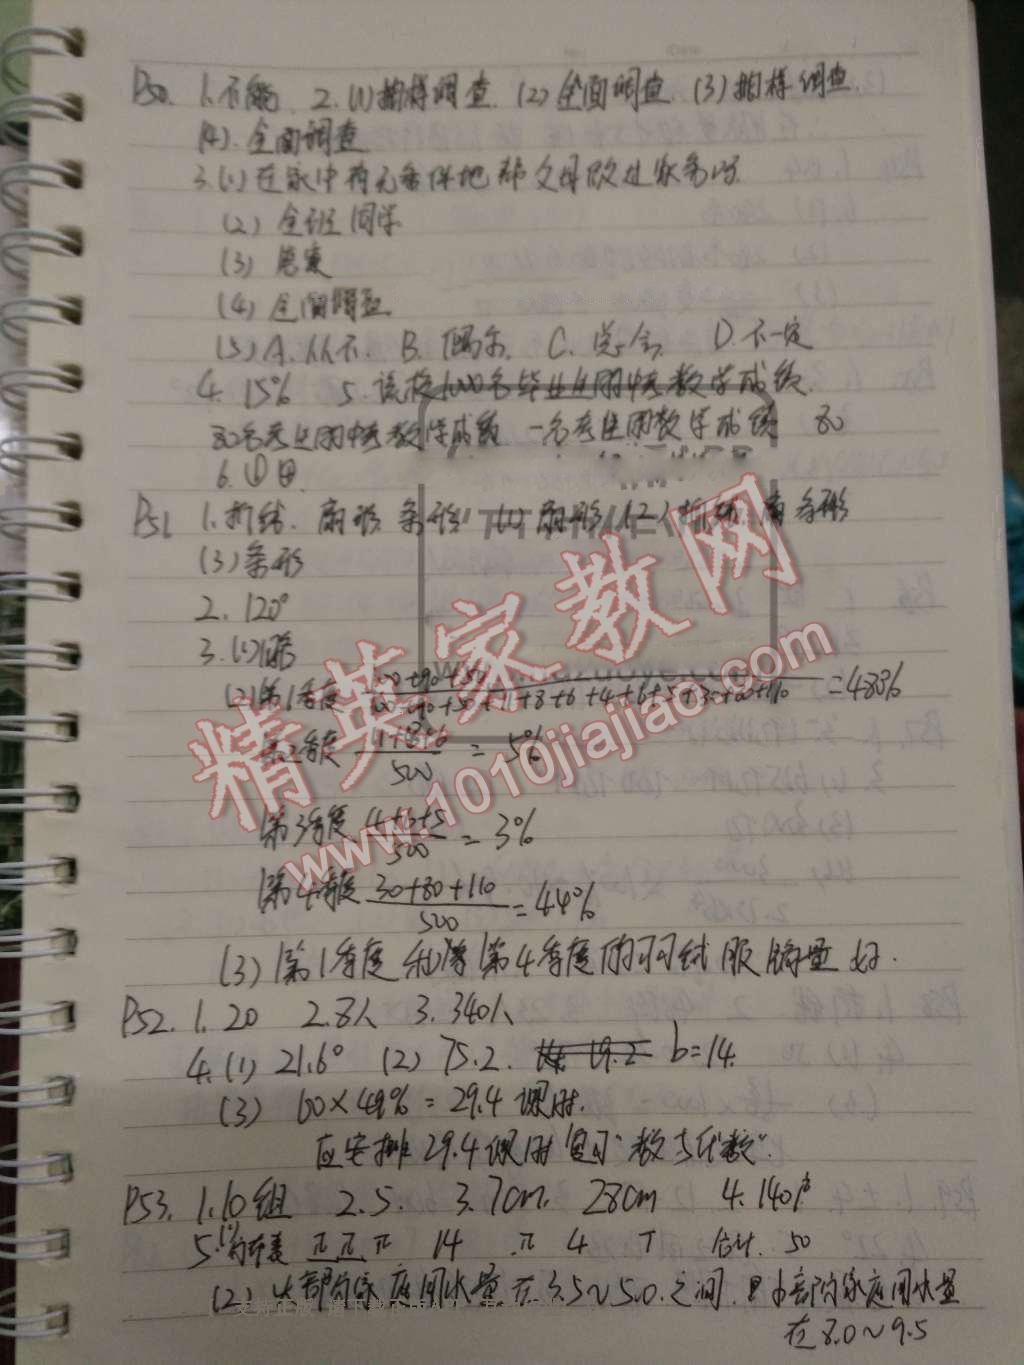 P50. 1.不能. 2.(1)抽样调查. (2)全面调查. (3)抽样调查.
(4).全面调查
3.(1)在家中有无条件地帮父母做过家务吗.
(2) 全班同学
(3) 
(4) 全面调查
(5) A.从不. B.偶尔. C. D.不一定
4. 15% 5.该校1000名毕业生的中考数学成绩.
80名考生的中考数学成绩 一名考生的数学成绩 80
6.①甲.
P51 1.折线. 扇形 条形 (1)扇形 (2)折线. 条形
(3)条形
2. 120°
3.(1)略
(2)第1季度 100+90+50 / 100+90+50+11+8+6+4+6+5+30+80+110 =48%
第2季度 11+8+6 / 500 = 5%
第3季度 4+6+5 / 500 = 3%
第4季度 30+80+110 / 500 =44%
(3)第1季度和第4季度的羽绒服销量好.
P52. 1. 20 2.8人 3. 340人
4.(1) 21.6° (2) 75.2. b=14.
(3) 60×49%=29.4课时.
应安排29.4课时复习"数与代数".
P53. 1.10组 2.5. 3.7cm. 28cm 4.140
5.(1) 14 4 合计. 50
(2)大部分家庭用水量在3.5~5.0.之间. 小部分家庭用水量
在8.0~9.5
精英家教网
www.1010jiajiao.com